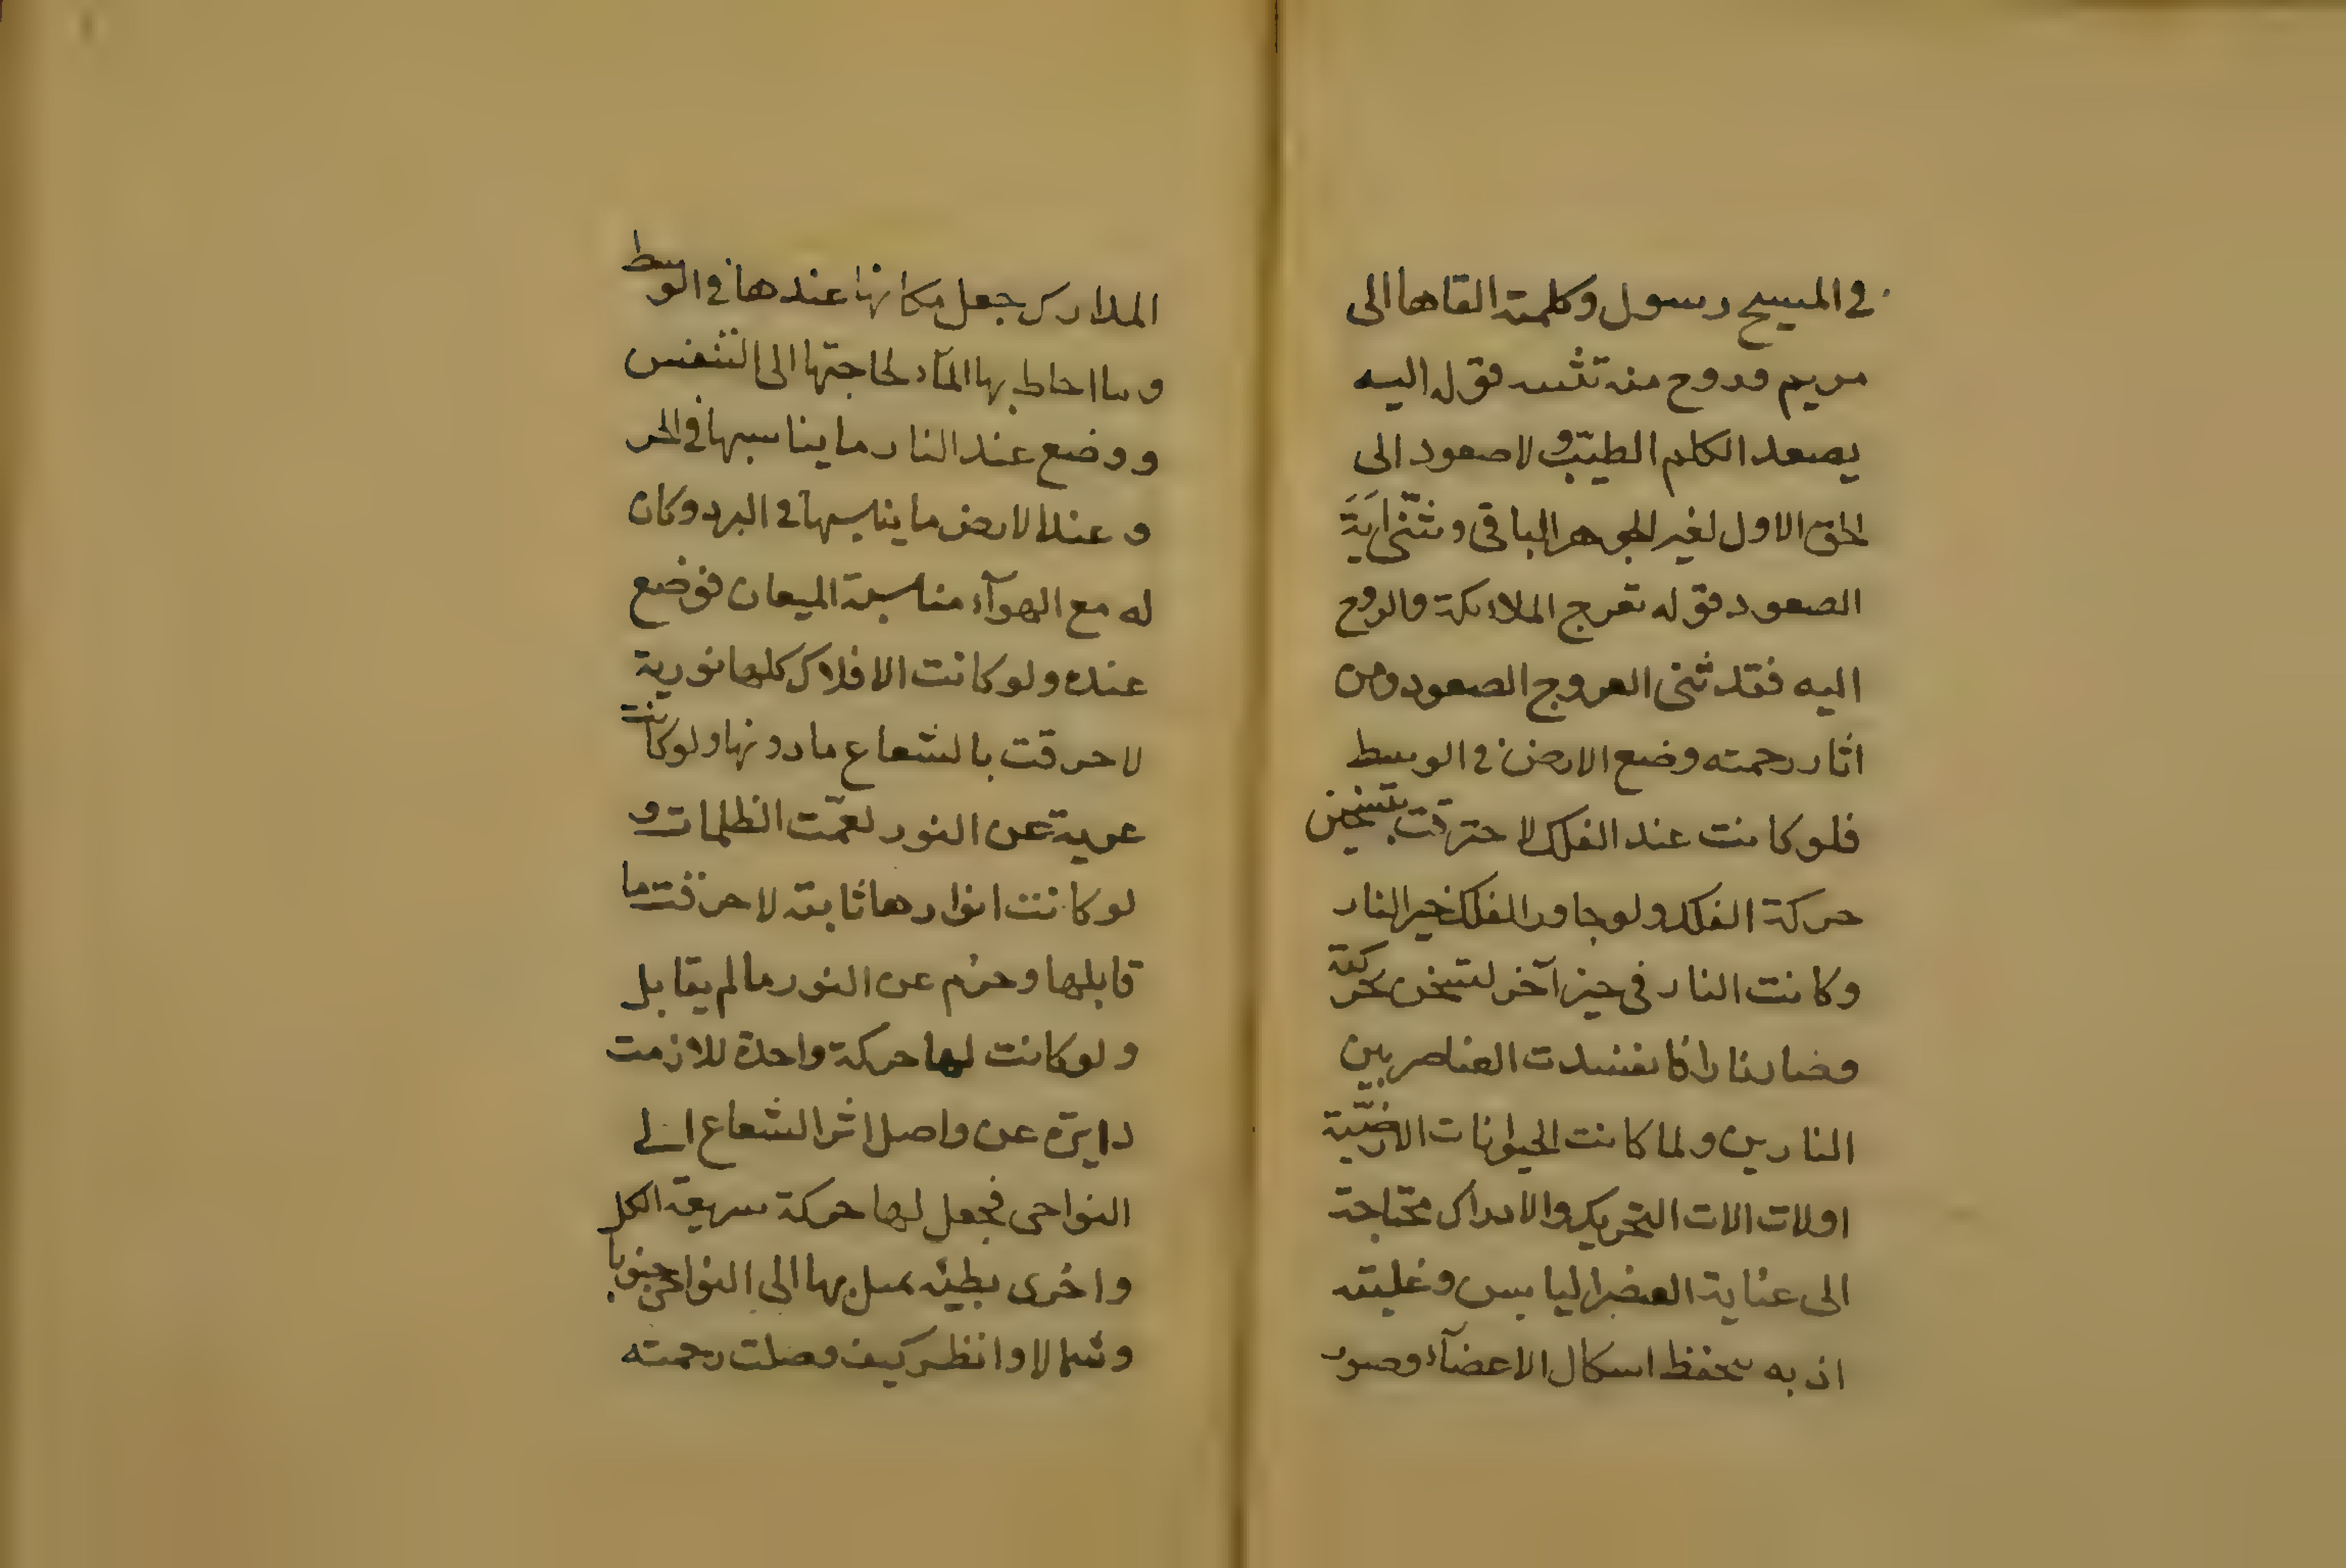 في المسيح رسول وكلمته القاها الى
مريم وروح منه تثنيه قوله اليه
يصعد الكلم الطيب و لا صعود الى
الحق الاول لغير الجوهر الباقى ومثنى اية
الصعود قوله تعرج الملائكة والروح
اليه فقد ثنى العروج الصعود ومن
اثار رحمته وضع الارض في الوسط
فلو كانت عند الفلك لاحترقت بتسخين
حركة الفلك ولو جاور الفلك غير النار
وكانت النار فى حيز آخر لتسخن بحركته
وصار نارا فانفسدت العناصر بين
النارين ولما كانت الحيوانات الارضية
اولات الات التحريك والادراك محتاجة
الى عناية العنصر اليابس وغلبته
اذ به تحفظ اشكال الاعضآء وصور
المدارك جعل مكانها عندها في الوسط
وما احاط بها المآء لحاجتها الى التنفس
ووضع عند النار ما يناسبها في الحر
وعند الارض ما يناسبها في البرد وكان
له مع الهوآء مناسبة الميعان فوضع
عنده ولو كانت الافلاك كلها نورية
لاحرقت بالشعاع ما دونها ولو كانت
عرية عن النور لعمّت الظلمات و
لو كانت انوارها ثابتة لاحرقت ما
قابلها وحرم عن النور ما لم يقابل
ولو كانت لها حركة واحدة للازمت
دايرة عن واصل اثر الشعاع الى
النواحى فجعل لها حركة سريعة الكل
واخرى بطيئه يميل بها الى النواحى جنوبا
وشمالا وانظر كيف وصلت رحمته